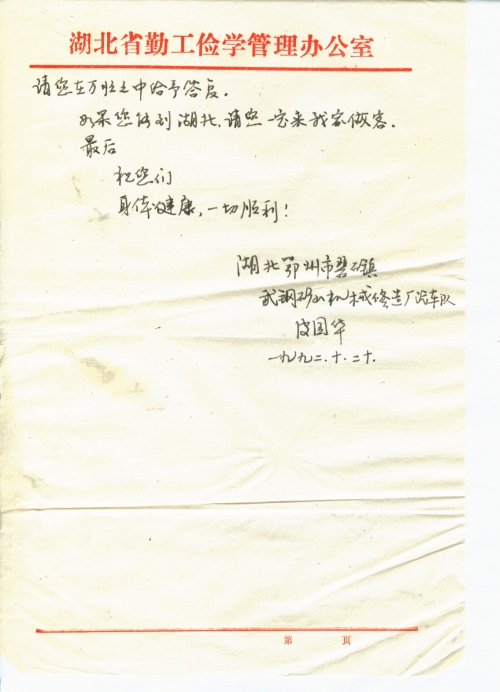 湖北省勤工俭学管理办公室
请您在万忙之中给予答复。
如果您能到湖北,请您一定来我家做客。
最后
祝您们
身体健康,一切顺利!
湖北鄂州市碧石镇
武钢矿山机械修造厂汽车队
皮国华
一九九二.十.二十.
第 页